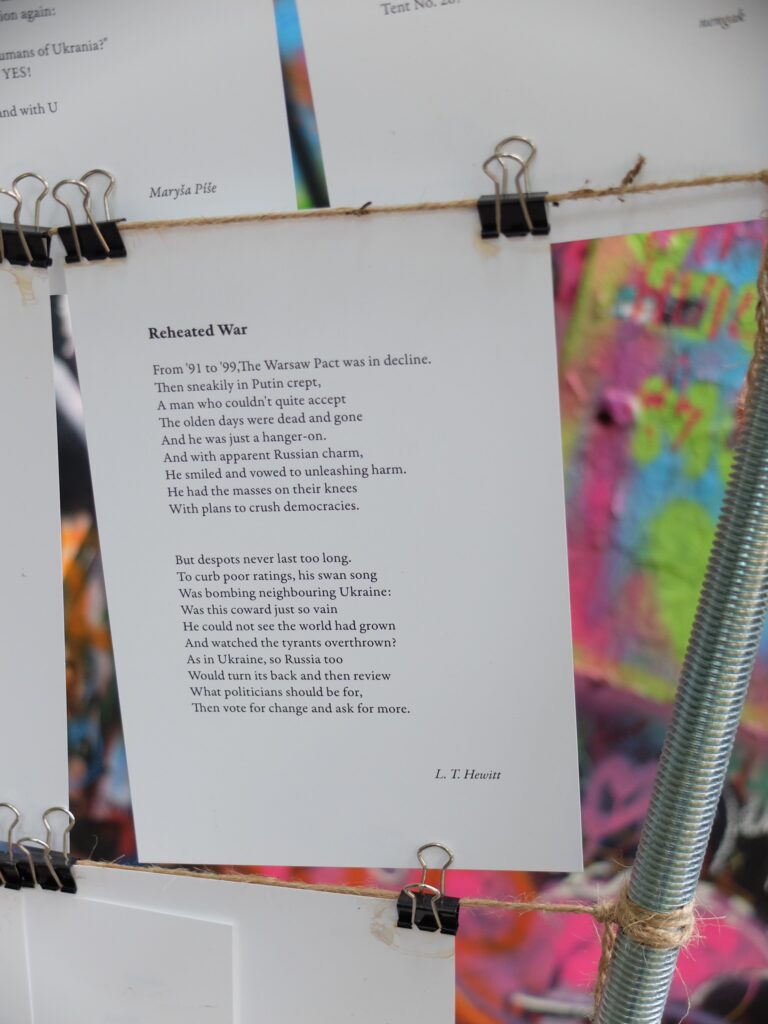 ion again:
umans of Ukrania?"
YES!
and with U
Maryša Píše
Tent No.
Reheated War
From '91 to '99,The Warsaw Pact was in decline.
Then sneakily in Putin crept,
A man who couldn't quite accept
The olden days were dead and gone
And he was just a hanger-on.
And with apparent Russian charm,
He smiled and vowed to unleashing harm.
He had the masses on their knees
With plans to crush democracies.
But despots never last too long.
To curb poor ratings, his swan song
Was bombing neighbouring Ukraine:
Was this coward just so vain
He could not see the world had grown
And watched the tyrants overthrown?
As in Ukraine, so Russia too
Would turn its back and then review
What politicians should be for,
Then vote for change and ask for more.
L. T. Hewitt